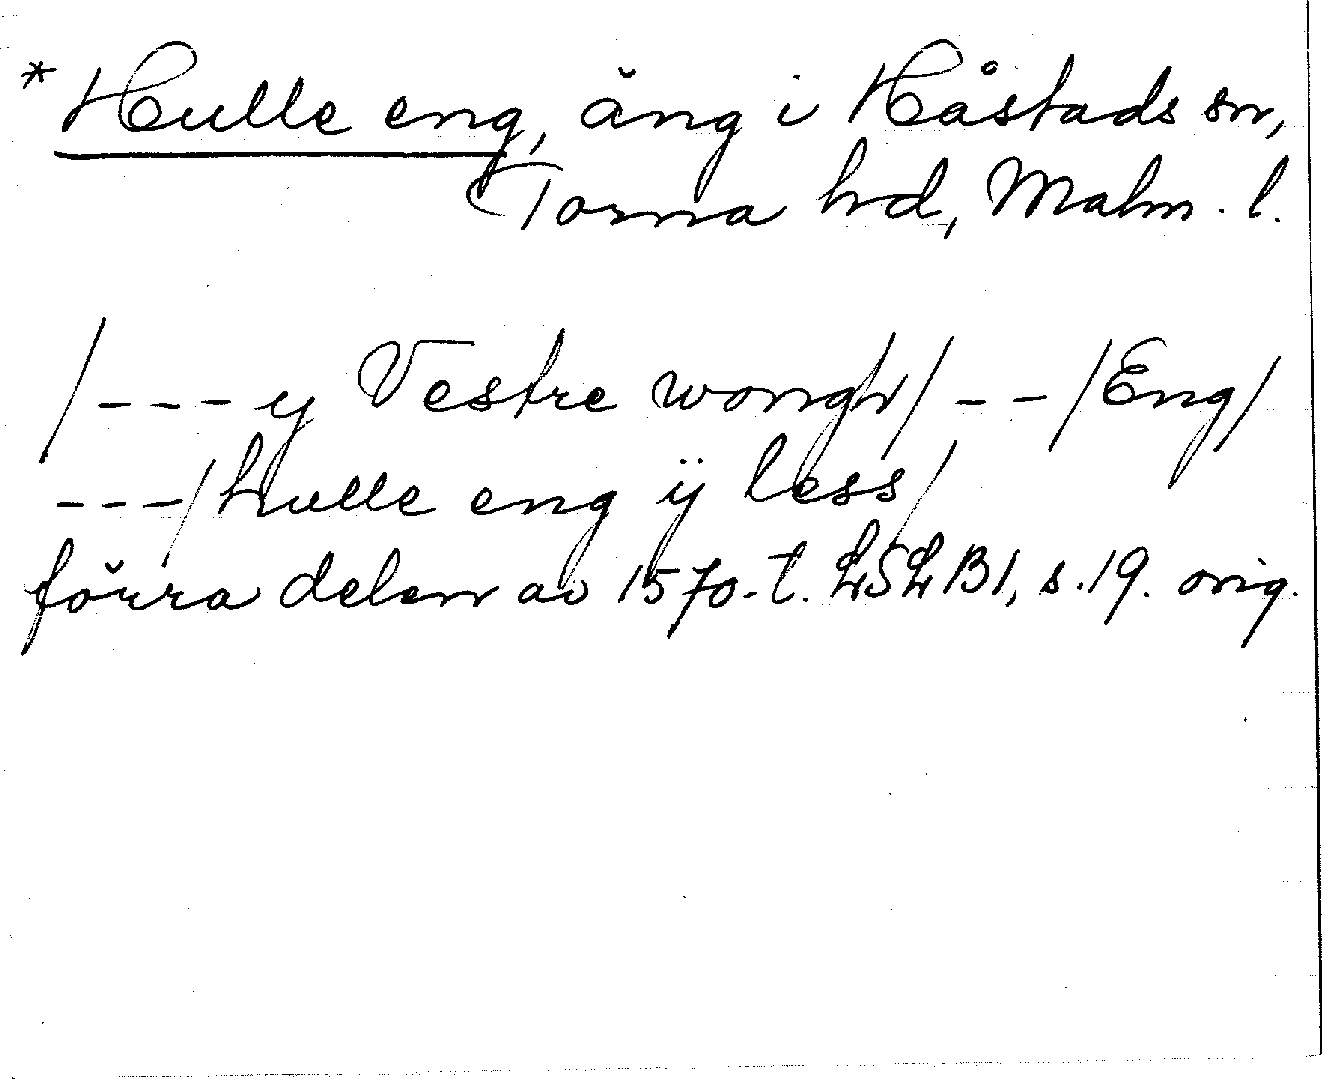 * Hulle eng, äng i Håstads sn,
Torna hd, Malm. l.
/---y Vestre wongh/ /--/Eng/
---/hulle eng ÿ less/
förra delen av 1570-t. LSLB1, s.19. orig.